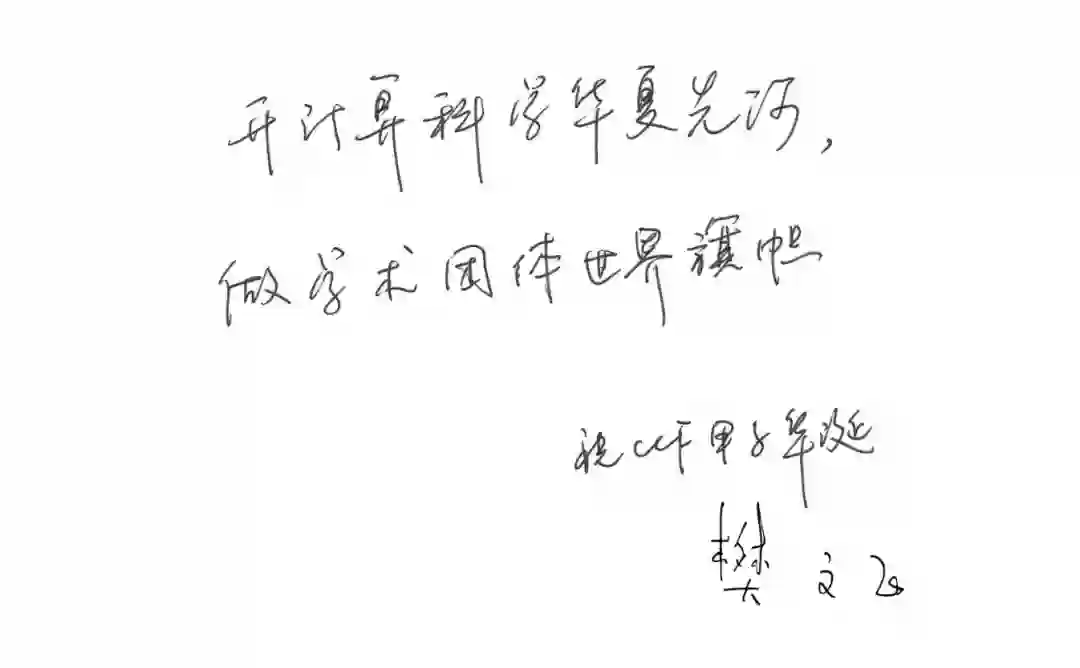 开计算科学华夏先河,
做学术团体世界旗帜
祝CCF甲子华诞
樊文飞